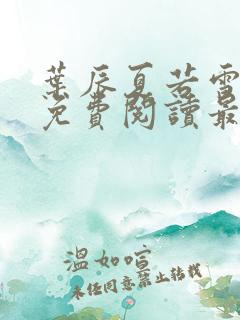 葉辰夏若雪
免費閱讀最
溫如喧
未經同意禁止轉載